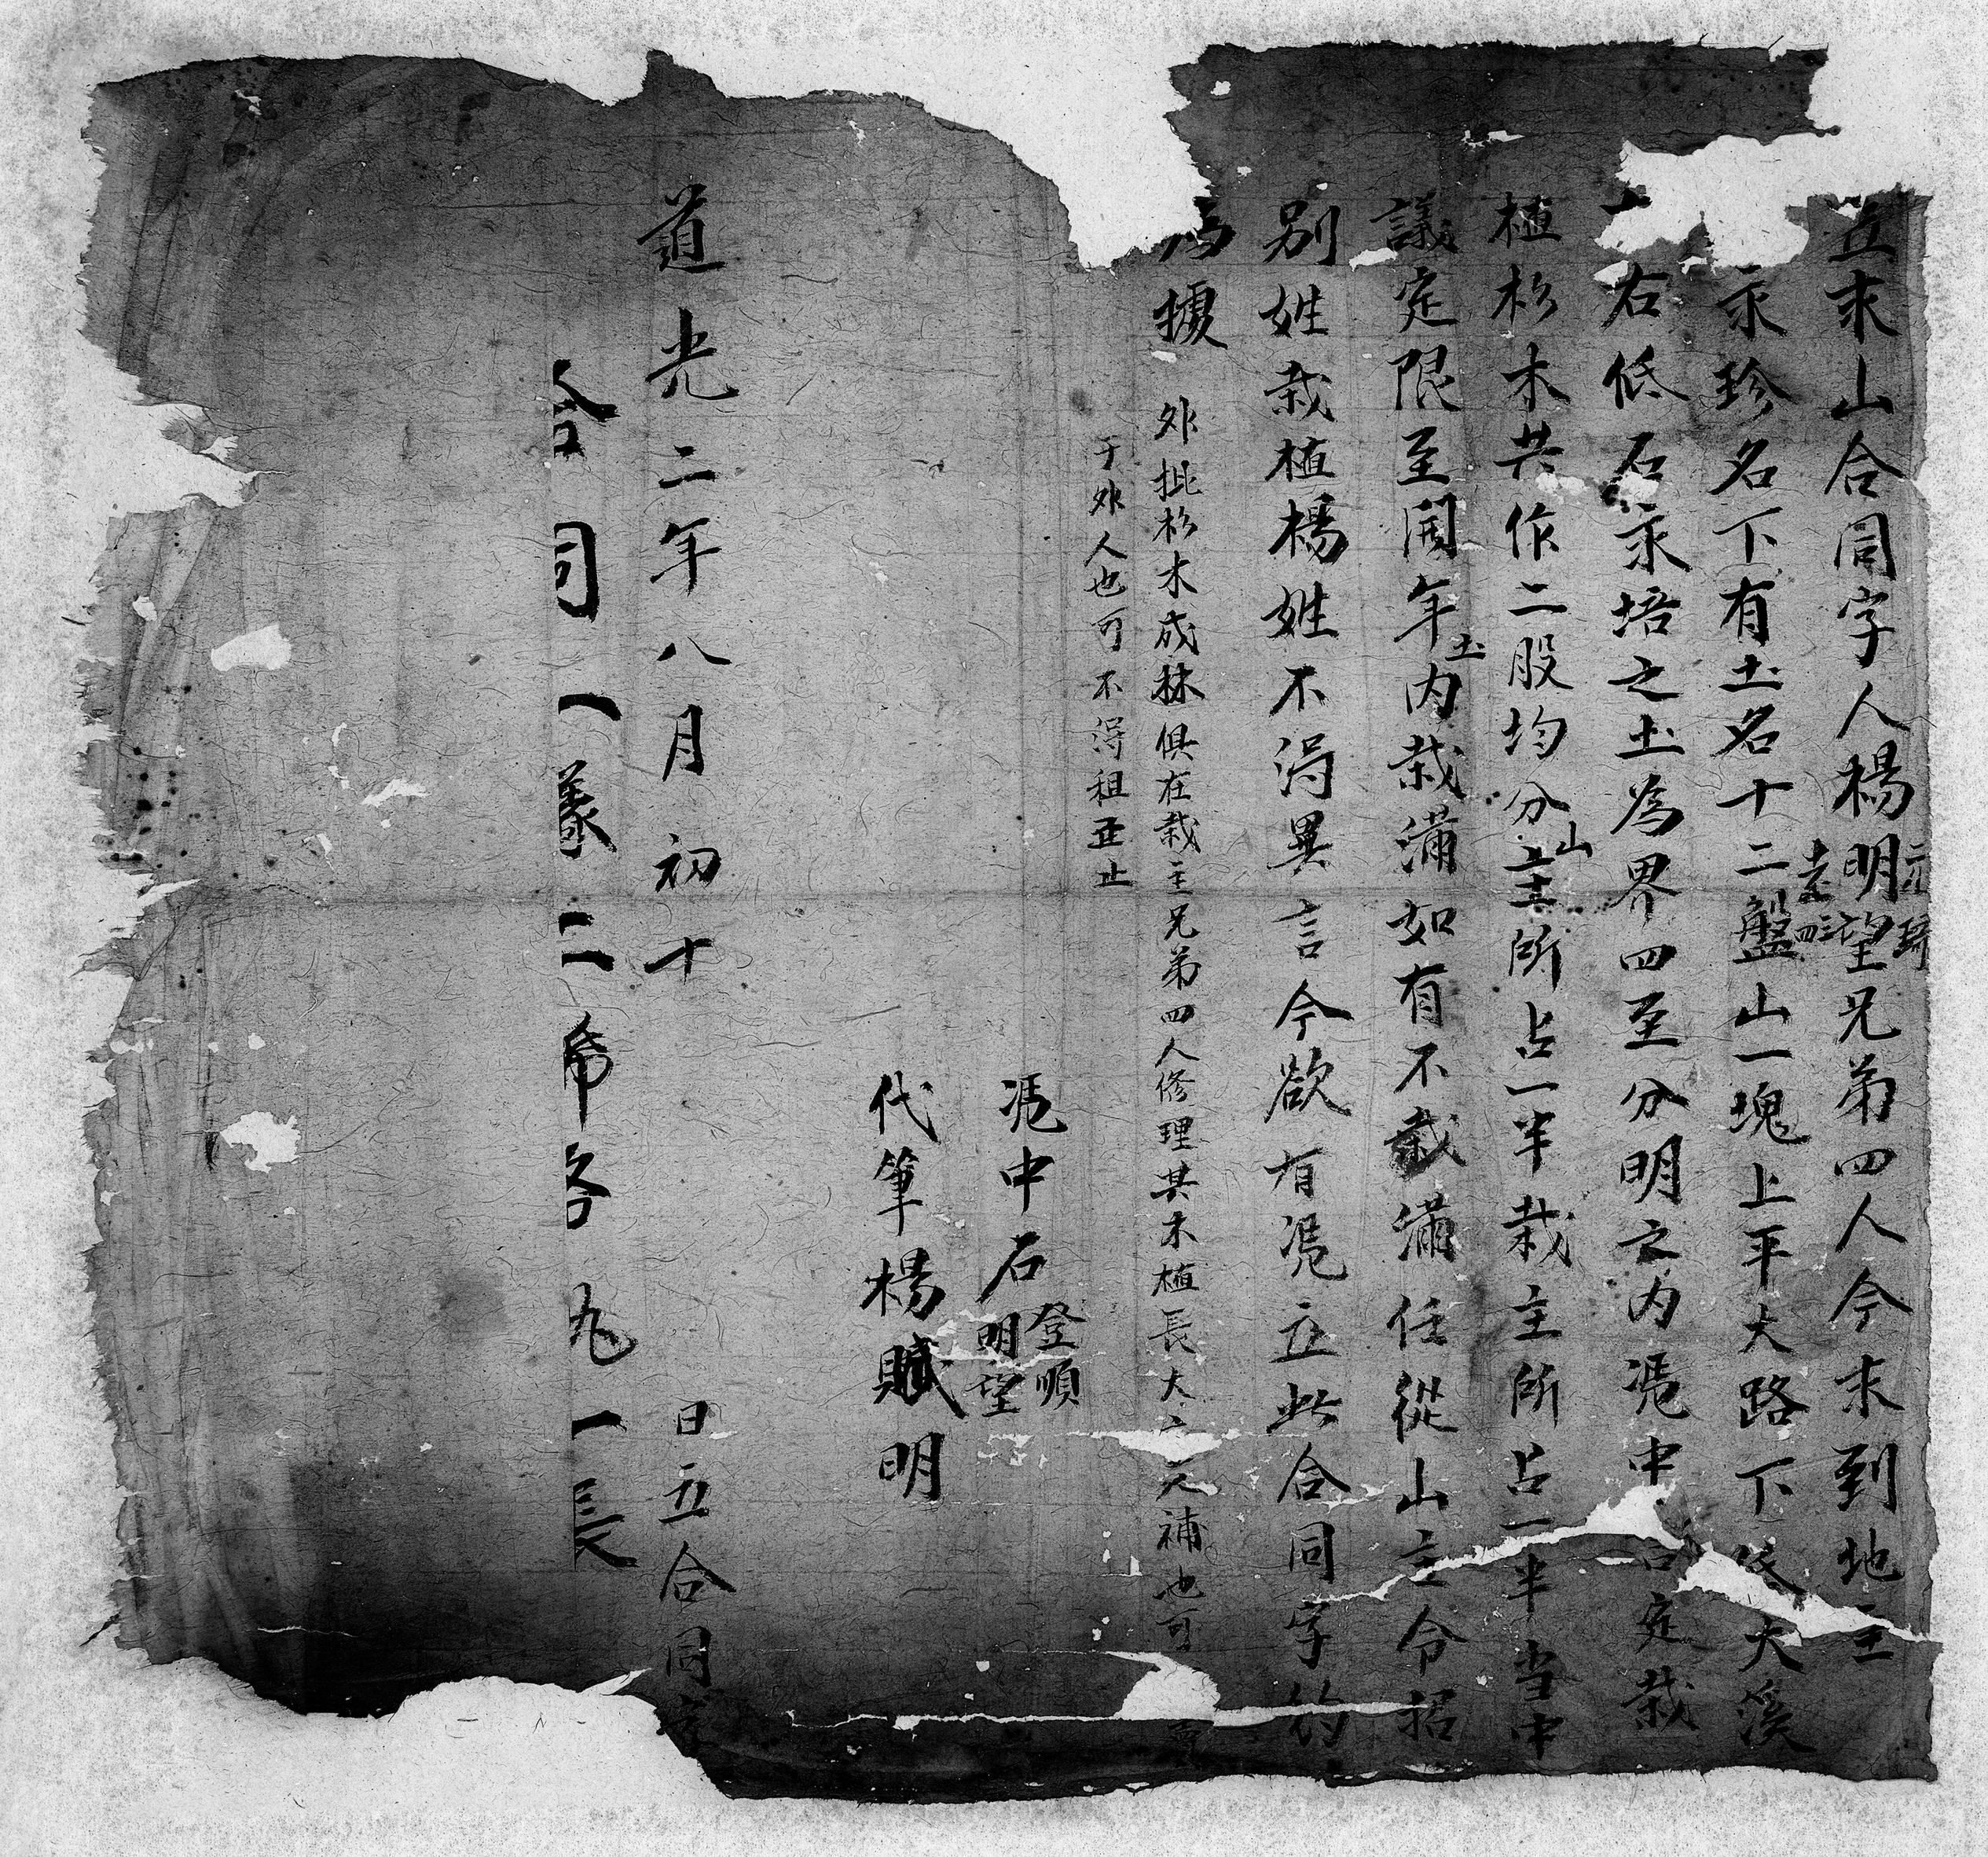 立求山合同字人楊明望兄弟四人今求到地主
元琦
老三四
求珍名下有土名十二盤山一塊上平大路下低大溪
右低石求培之土為界四至分明之内凴中言定栽
植杉木共作二股均分主所占一半栽主所占一半当中
山
議定限至開年内栽滿如有不栽滿任從山主令招
土
別姓栽植楊姓不淂異言今欲有凴立此合同字約
為據
外批杉木成林俱在栽主兄弟四人修理其木植長大 補也可賣
于外人也可不淂租歪止
凴中石登順
明望
代筆楊賦明
道光二年八月初十日立合同字
合同一樣二帋各九一長